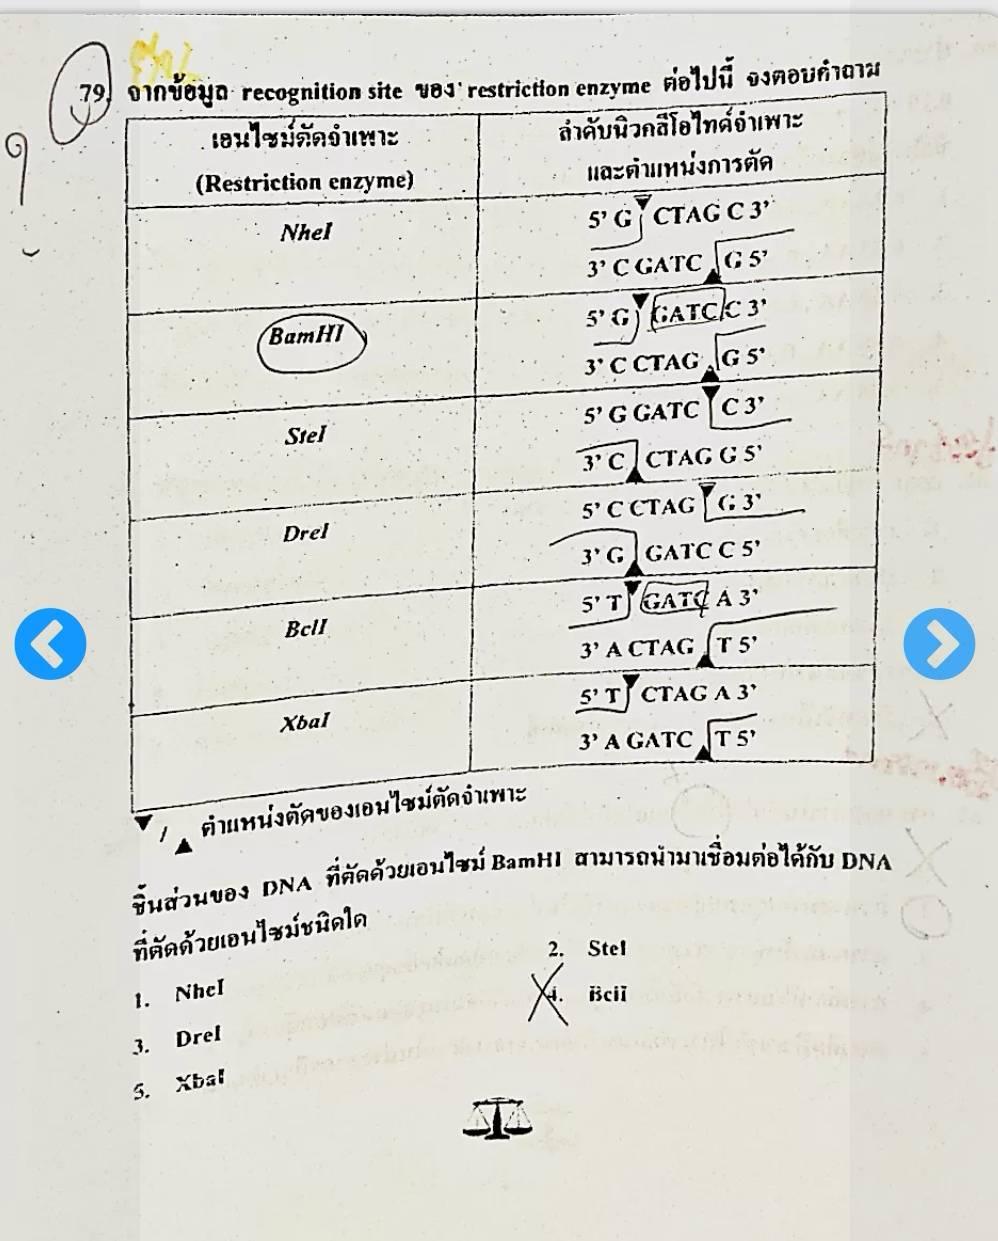 79. จากข้อมูล recognition site ของ restriction enzyme ต่อไปนี้ จงตอบคำถาม
เอนไซม์ตัดจำเพาะ
(Restriction enzyme)
ลำดับนิวคลีโอไทด์จำเพาะ
และตำแหน่งการตัด
NheI
5’ G CTAG C 3’
3’ C GATC G 5’
BamHI
5’ G GATC C 3’
3’ C CTAG G 5’
SteI
5’ G GATC C 3’
3’ C CTAG G 5’
DreI
5’ C CTAG G 3’
3’ G GATC C 5’
BclI
5’ T GATC A 3’
3’ A CTAG T 5’
XbaI
5’ T CTAG A 3’
3’ A GATC T 5’
▼ / ▲ ตำแหน่งตัดของเอนไซม์ตัดจำเพาะ
ชิ้นส่วนของ DNA ที่ตัดด้วยเอนไซม์ BamHI สามารถนำมาเชื่อมต่อได้กับ DNA
ที่ตัดด้วยเอนไซม์ชนิดใด
1. NheI
2. SteI
3. DreI
4. BclI
5. XbaI